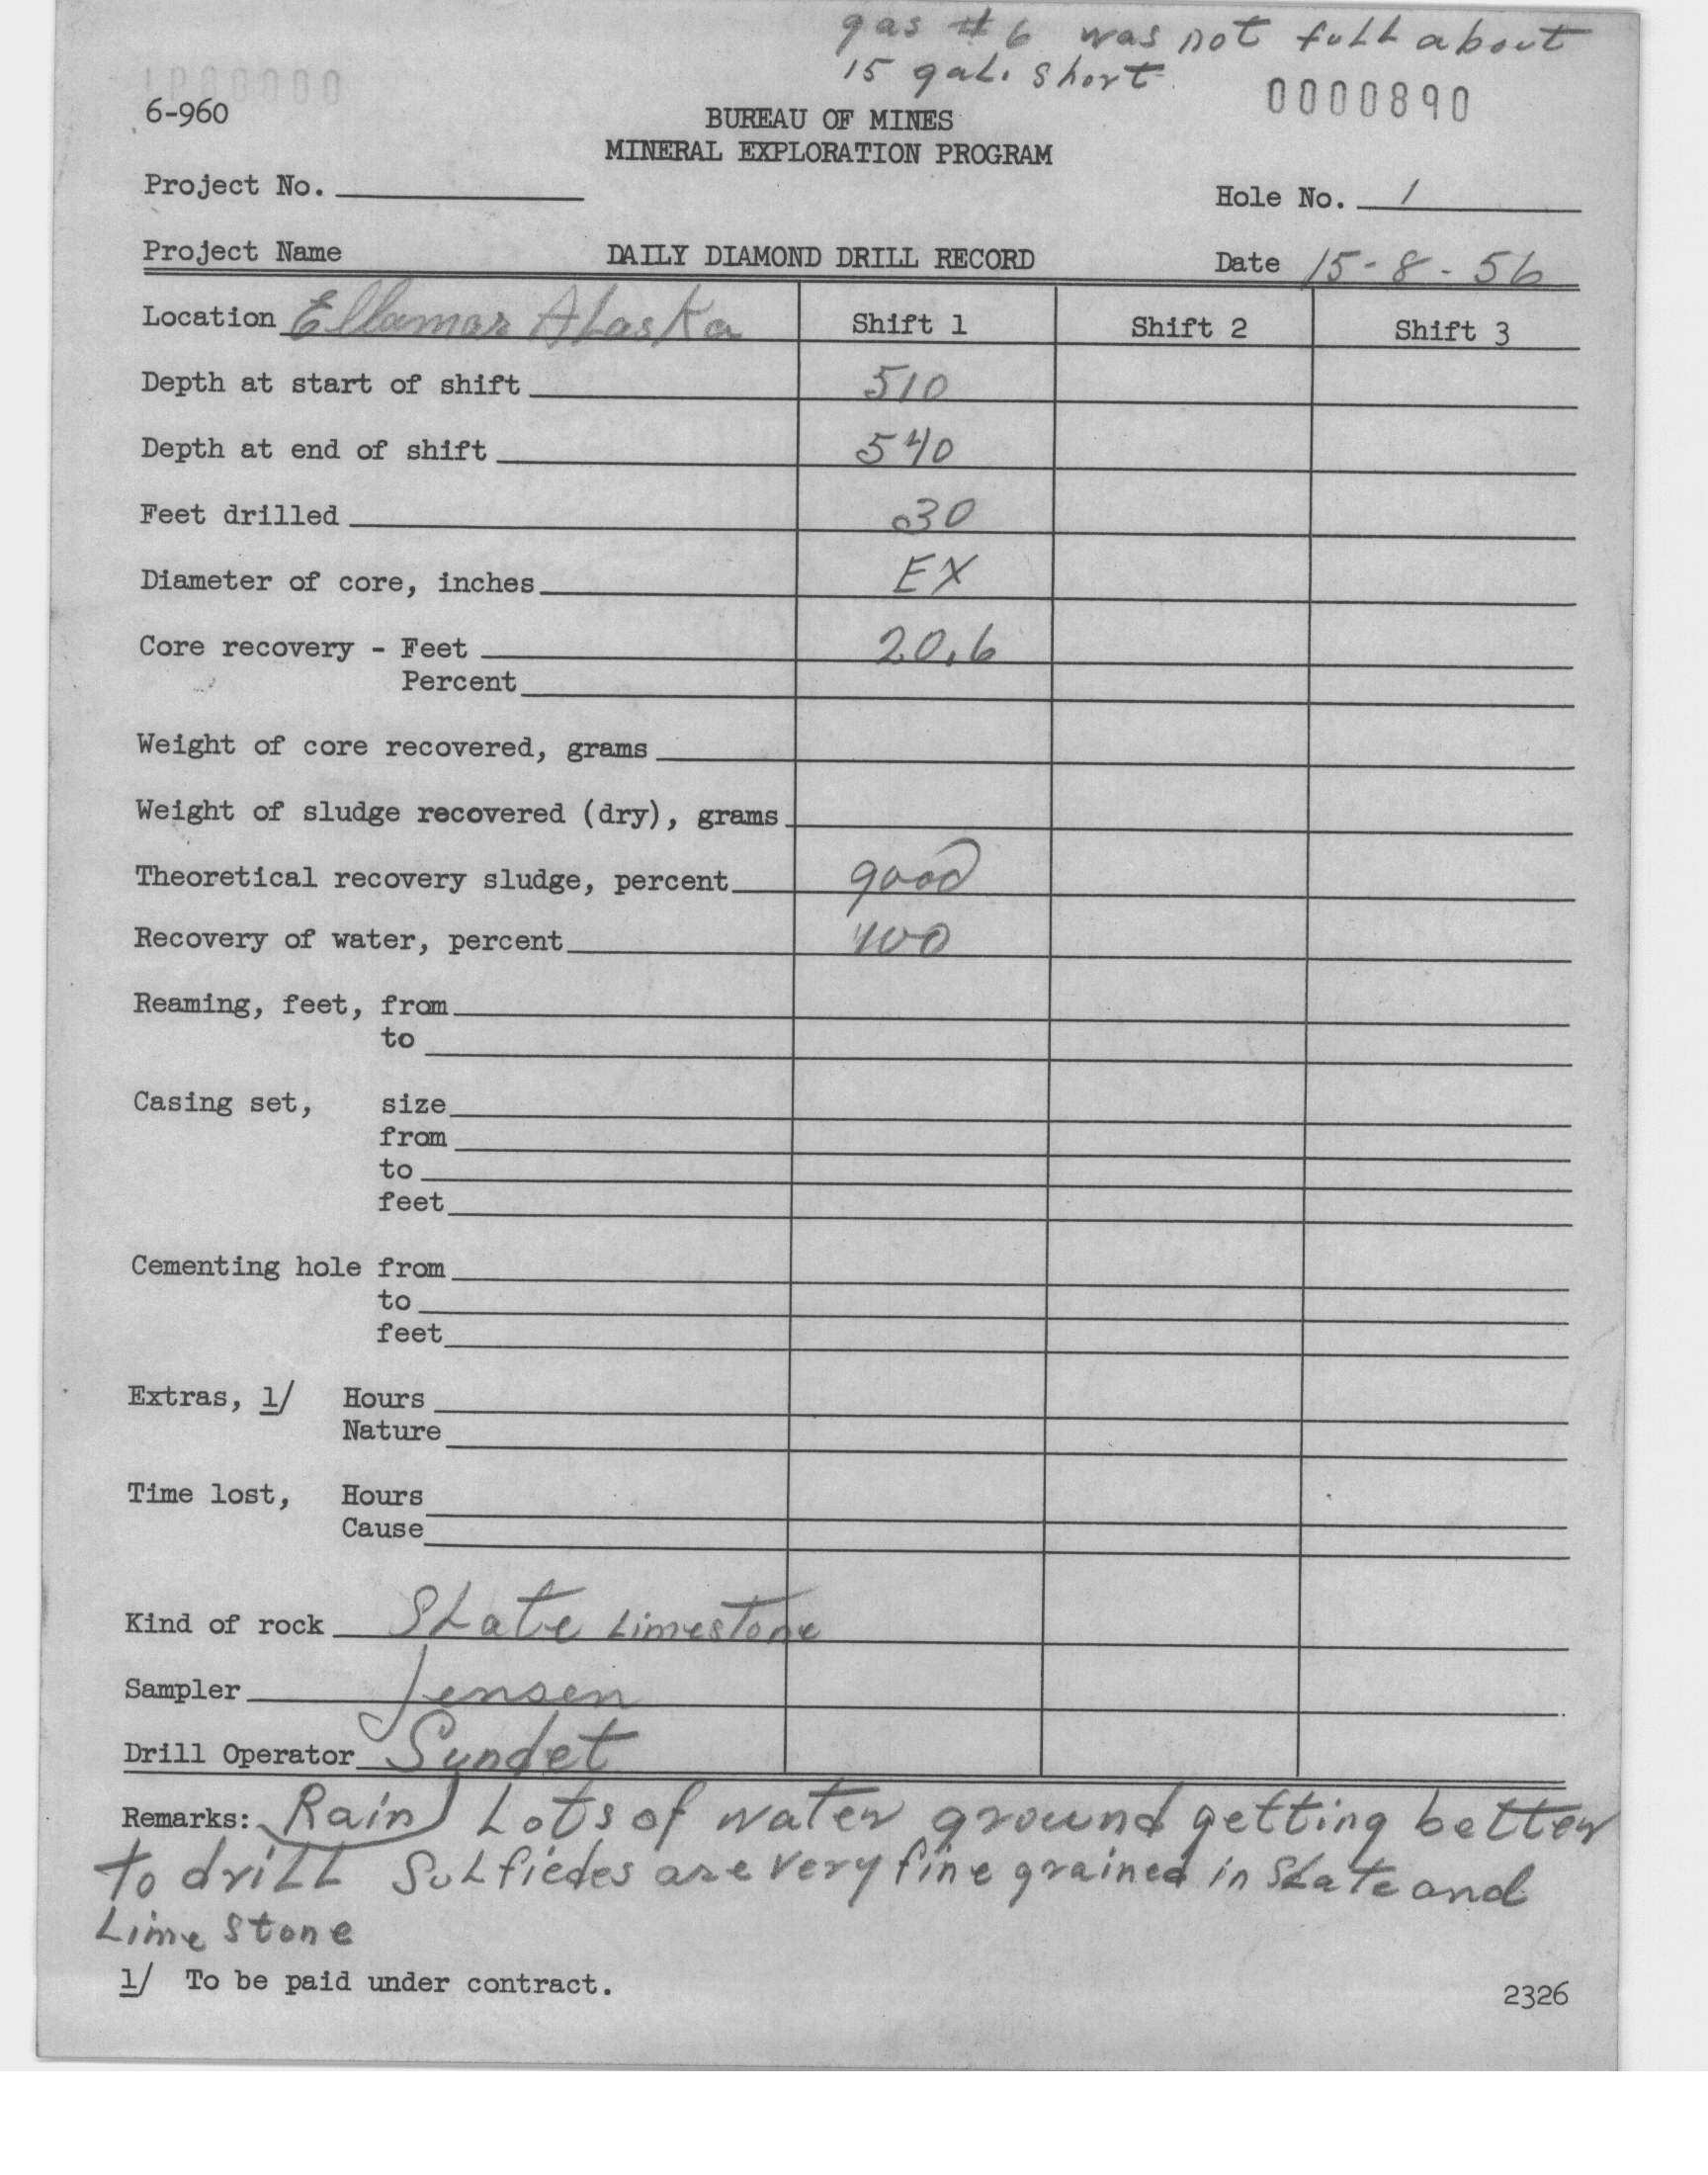 gas #6 was not full about
15 gal. short
0000890
6-960
BUREAU OF MINES
MINERAL EXPLORATION PROGRAM
Project No.
Hole No. 1
Project Name DAILY DIAMOND DRILL RECORD Date 15-8-56
Location Ellamar Alaska Shift 1 Shift 2 Shift 3
Depth at start of shift 510
Depth at end of shift 540
Feet drilled 30
Diameter of core, inches EX
Core recovery - Feet 20.6
Percent
Weight of core recovered, grams
Weight of sludge recovered (dry), grams
Theoretical recovery sludge, percent good
Recovery of water, percent 100
Reaming, feet, from
to
Casing set, size
from
to
feet
Cementing hole from
to
feet
Extras, 1/ Hours
Nature
Time lost, Hours
Cause
Kind of rock Slate Limestone
Sampler Jensen
Drill Operator Sundet
Remarks: Rain Lots of water ground getting better
to drill Sulfiedes are very fine grained in Slate and
Lime stone
1/ To be paid under contract.
2326